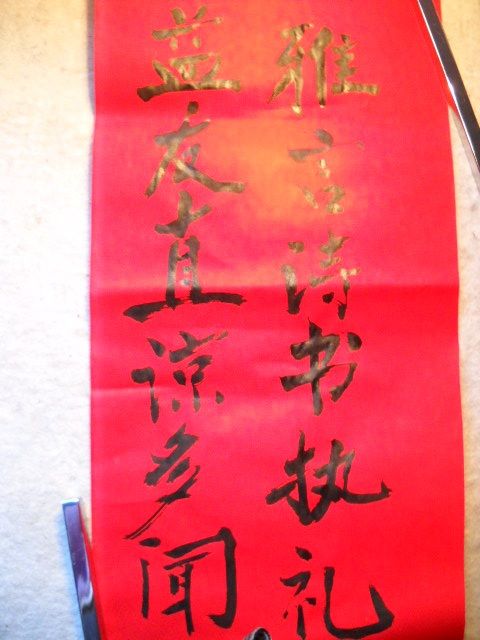 雅言诗书执礼
益友直谅多闻